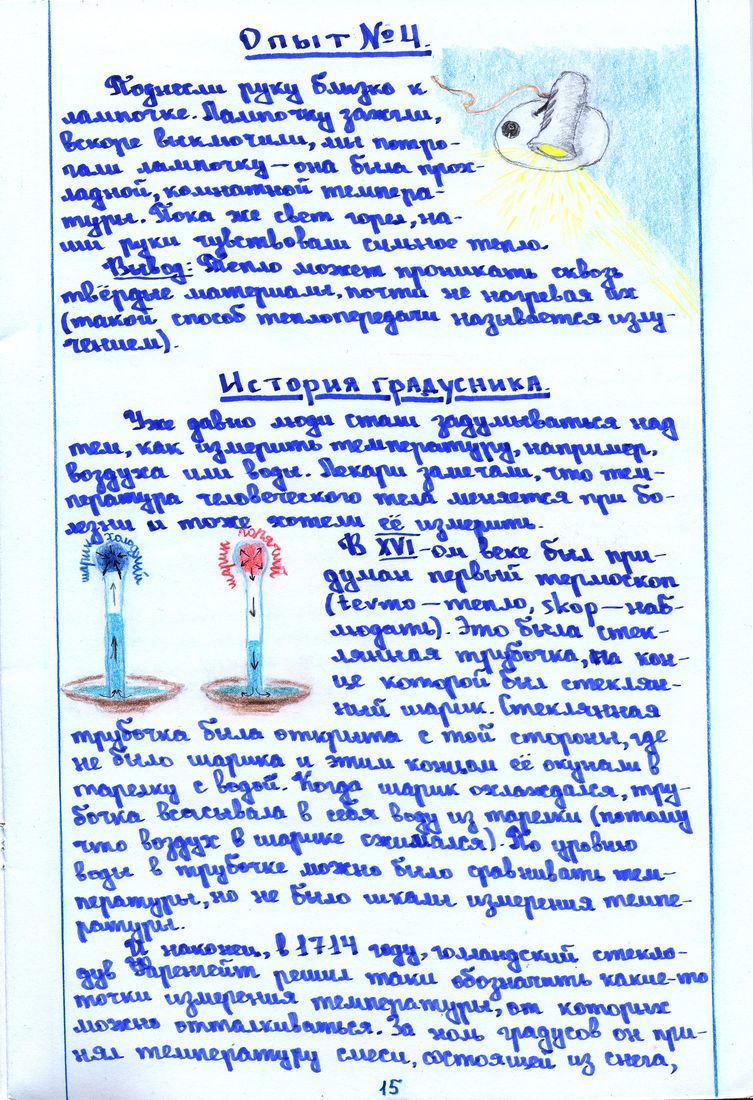 Опыт №4.
Поднесли руку близко к
лампочке. Лампочку зажгли,
вскоре выключили, мы потро-
гали лампочку – она была прох-
ладной, комнатной темпера-
туры. Пока же свет горел, на-
ши руки чувствовали сильное тепло.
Вывод: Тепло может проникать сквозь
твёрдые материалы, почти не нагревая их
(такой способ теплопередачи называется излу-
чением).
История градусника.
Уже давно люди стали задумываться над
тем, как измерить температуру, например,
воздуха или воды. Лекари замечали, что тем-
пература человеческого тела меняется при бо-
лезни и тоже хотели её измерить.
шарик холодный
шарик горячий
В XVI-ом веке был при-
думан первый термоскоп
(tevmo – тепло, skop – наб-
людать). Это была стек-
лянная трубочка, на кон-
це которой был стеклян-
ный шарик. Стеклянная
трубочка была открыта с той стороны, где
не было шарика и этим концом её окунали в
тарелку с водой. Когда шарик охлаждался, тру-
бочка всасывала в себя воду из тарелки (потому
что воздух в шарике сжимался). По уровню
воды в трубочке можно было сравнивать тем-
пературы, но не было шкалы измерения темпе-
ратуры.
И наконец, в 1714 году, голландский стекло-
дув Фаренгейт решил таки обозначить какие-то
точки измерения температуры, от которых
можно отталкиваться. За ноль градусов он при-
нял температуру смеси, состоящей из снега,
15